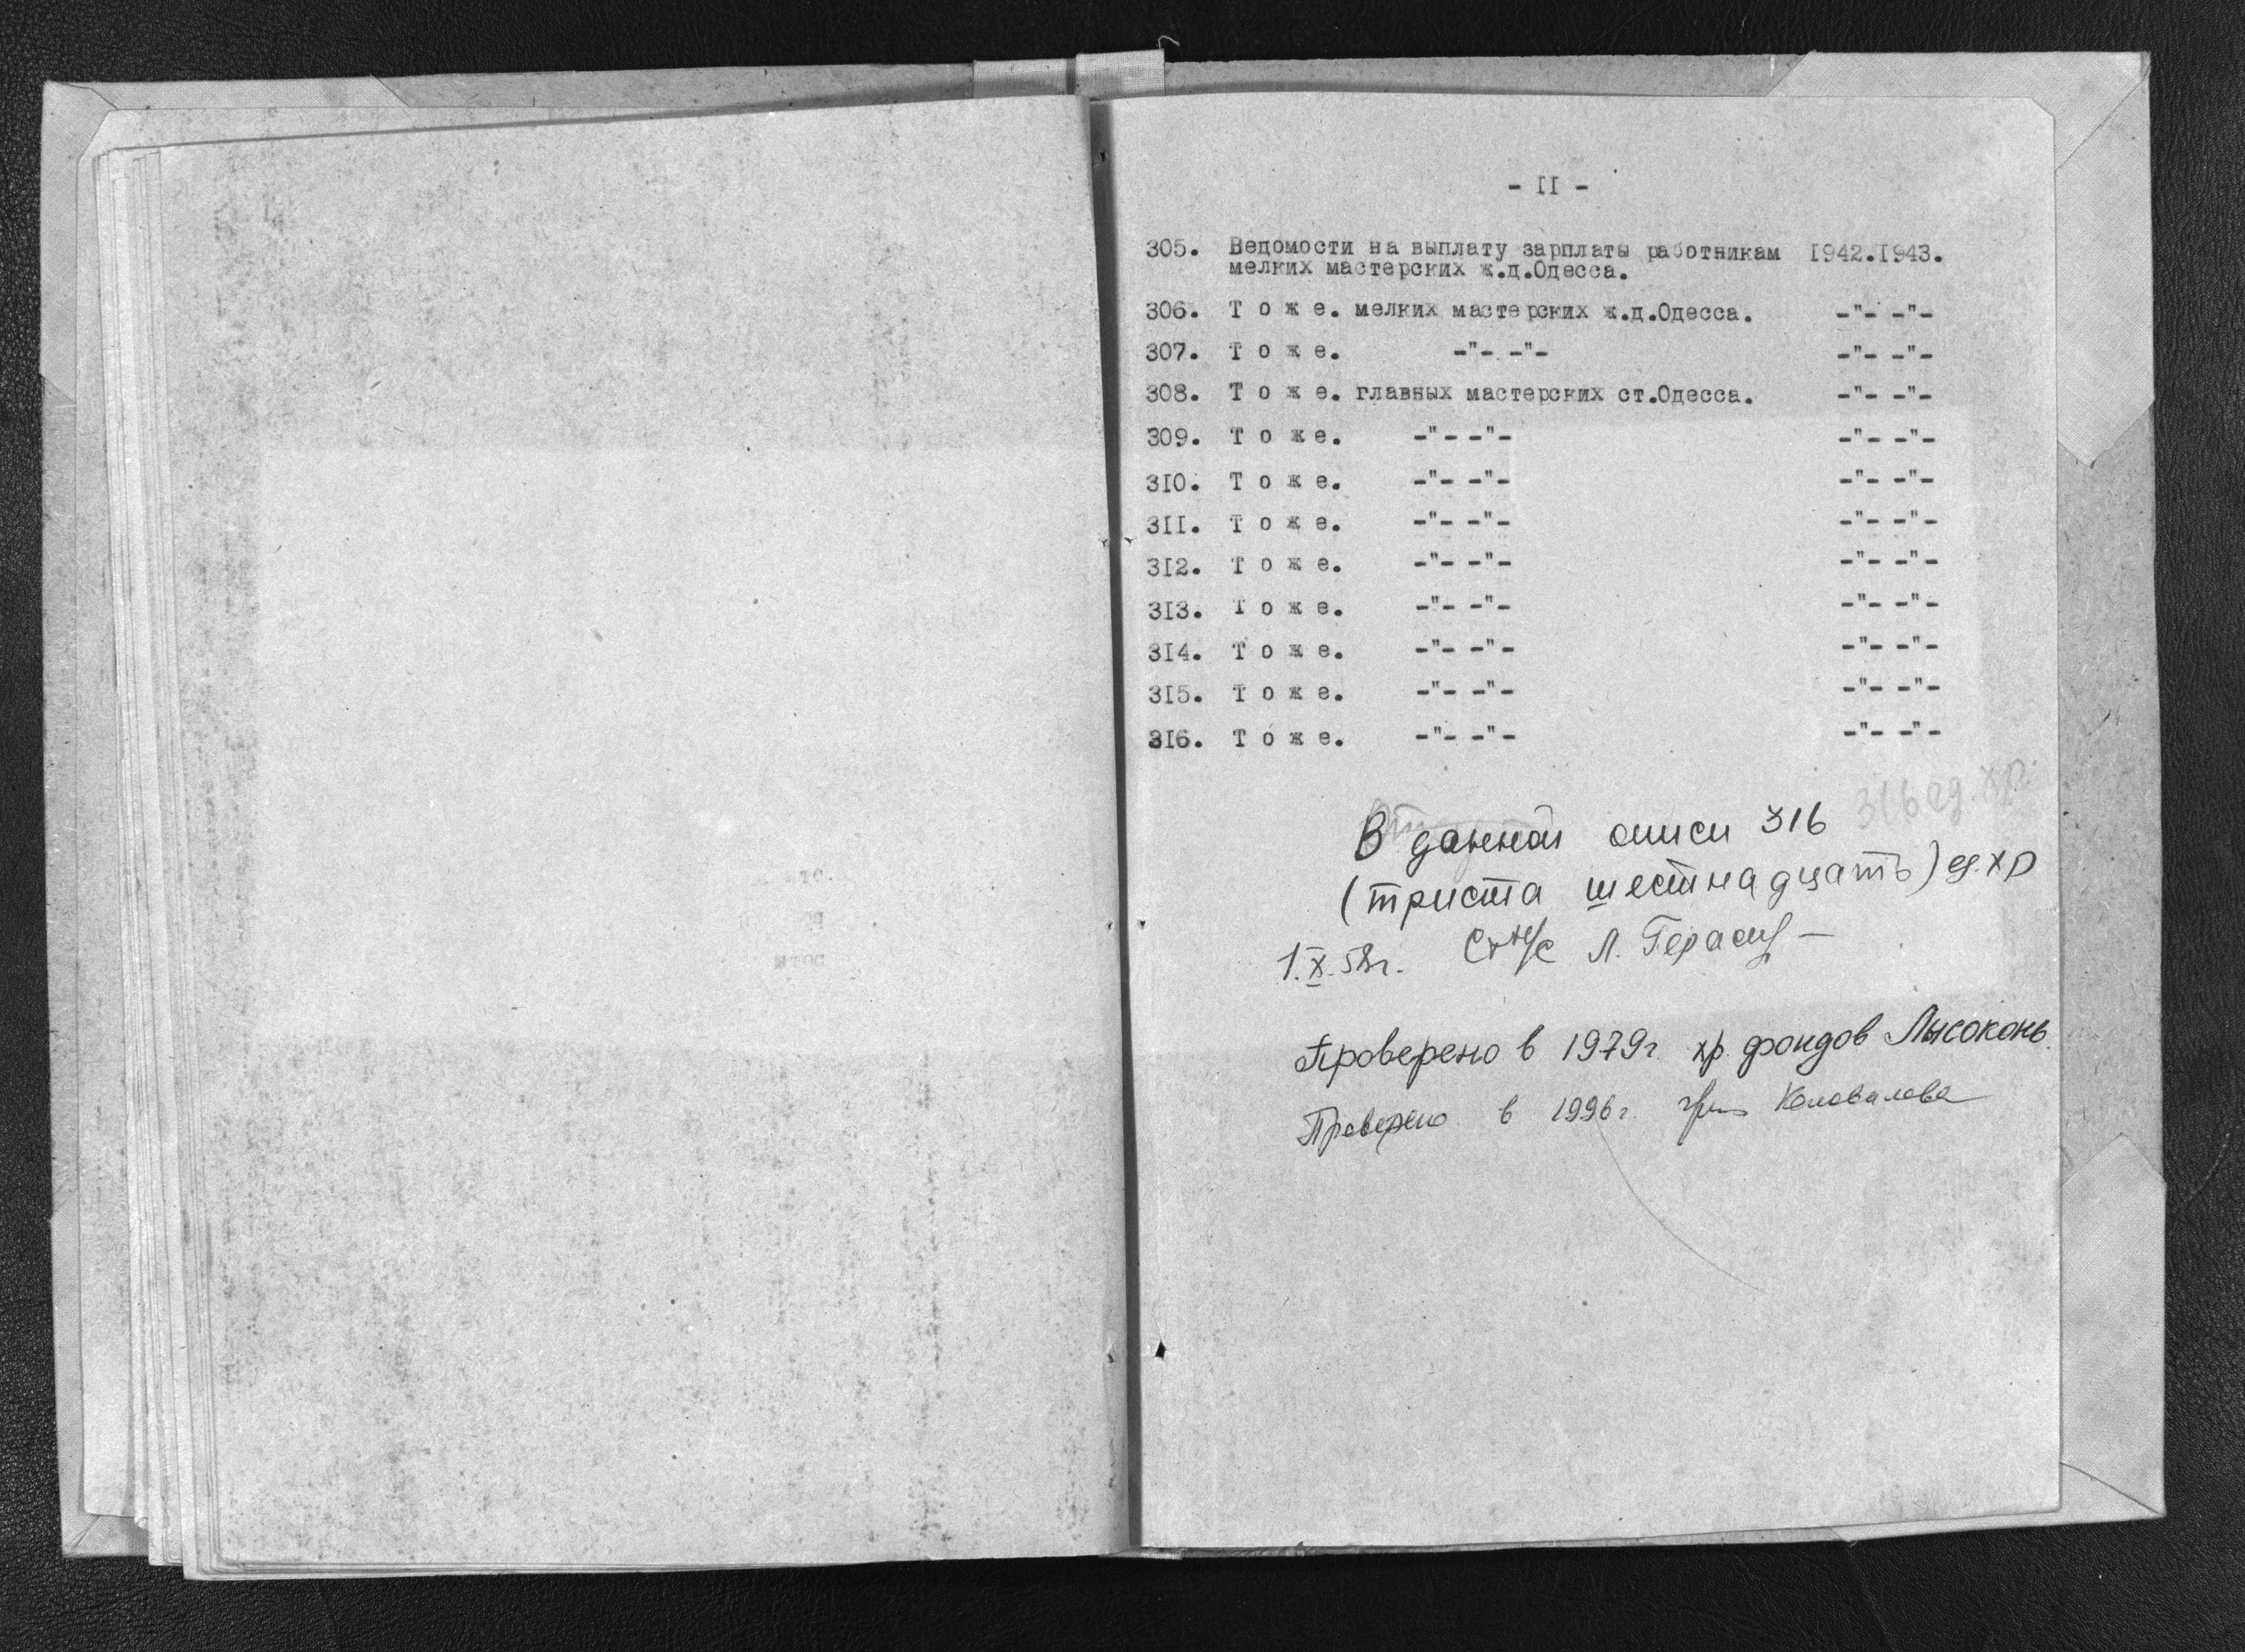 - II -
305. Ведомости на выплату зарплаты работникам I942.I943.
мелких мастерских ж.д.Одесса.
306. Т о ж е. мелких мастерских ж.д.Одесса. -"- -"-
307. Т о ж е. -"- -"- -"- -"-
308. Т о ж е. главных мастерских ст.Одесса. -"- -"-
309. Т о ж е. -"- -"- -"- -"-
3I0. Т о ж е. -"- -"- -"- -"-
3II. Т о ж е. -"- -"- -"- -"-
3I2. Т о ж е. -"- -"- -"- -"-
3I3. Т о ж е. -"- -"- -"- -"-
3I4. Т о ж е. -"- -"- -"- -"-
3I5. Т о ж е. -"- -"- -"- -"-
3I6. Т о ж е. -"- -"- -"- -"-
316 ед. хр.
В данной описи 316
(триста шестнадцать) ед. хр
1.X.58г. Л.
Проверено в 1979г. хр. фондов Лысоконь
Проверено в 1996г. Коновалова